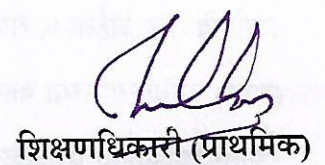 शिक्षणाधिकारी (प्राथमिक)